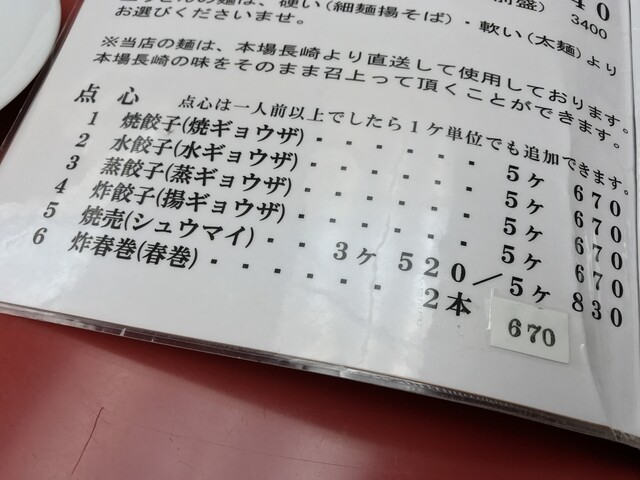 40
前盛) 3400
麺は、硬い(細麺揚そば)・軟い(太麺)より
お選びくださいませ。
※当店の麺は、本場長崎より直送して使用しております。
本場長崎の味をそのまま召上って頂くことができます。
点 心 点心は一人前以上でしたら1ケ単位でも追加できます。
1 焼餃子(焼ギョウザ)・・・・・・5ヶ 670
2 水餃子(水ギョウザ)・・・・・・5ヶ 670
3 蒸餃子(蒸ギョウザ)・・・・・・5ヶ 670
4 炸餃子(揚ギョウザ)・・・・・・5ヶ 670
5 焼売(シュウマイ)・・3ヶ 520/5ヶ 830
6 炸春巻(春巻)・・・・・・・2本 670